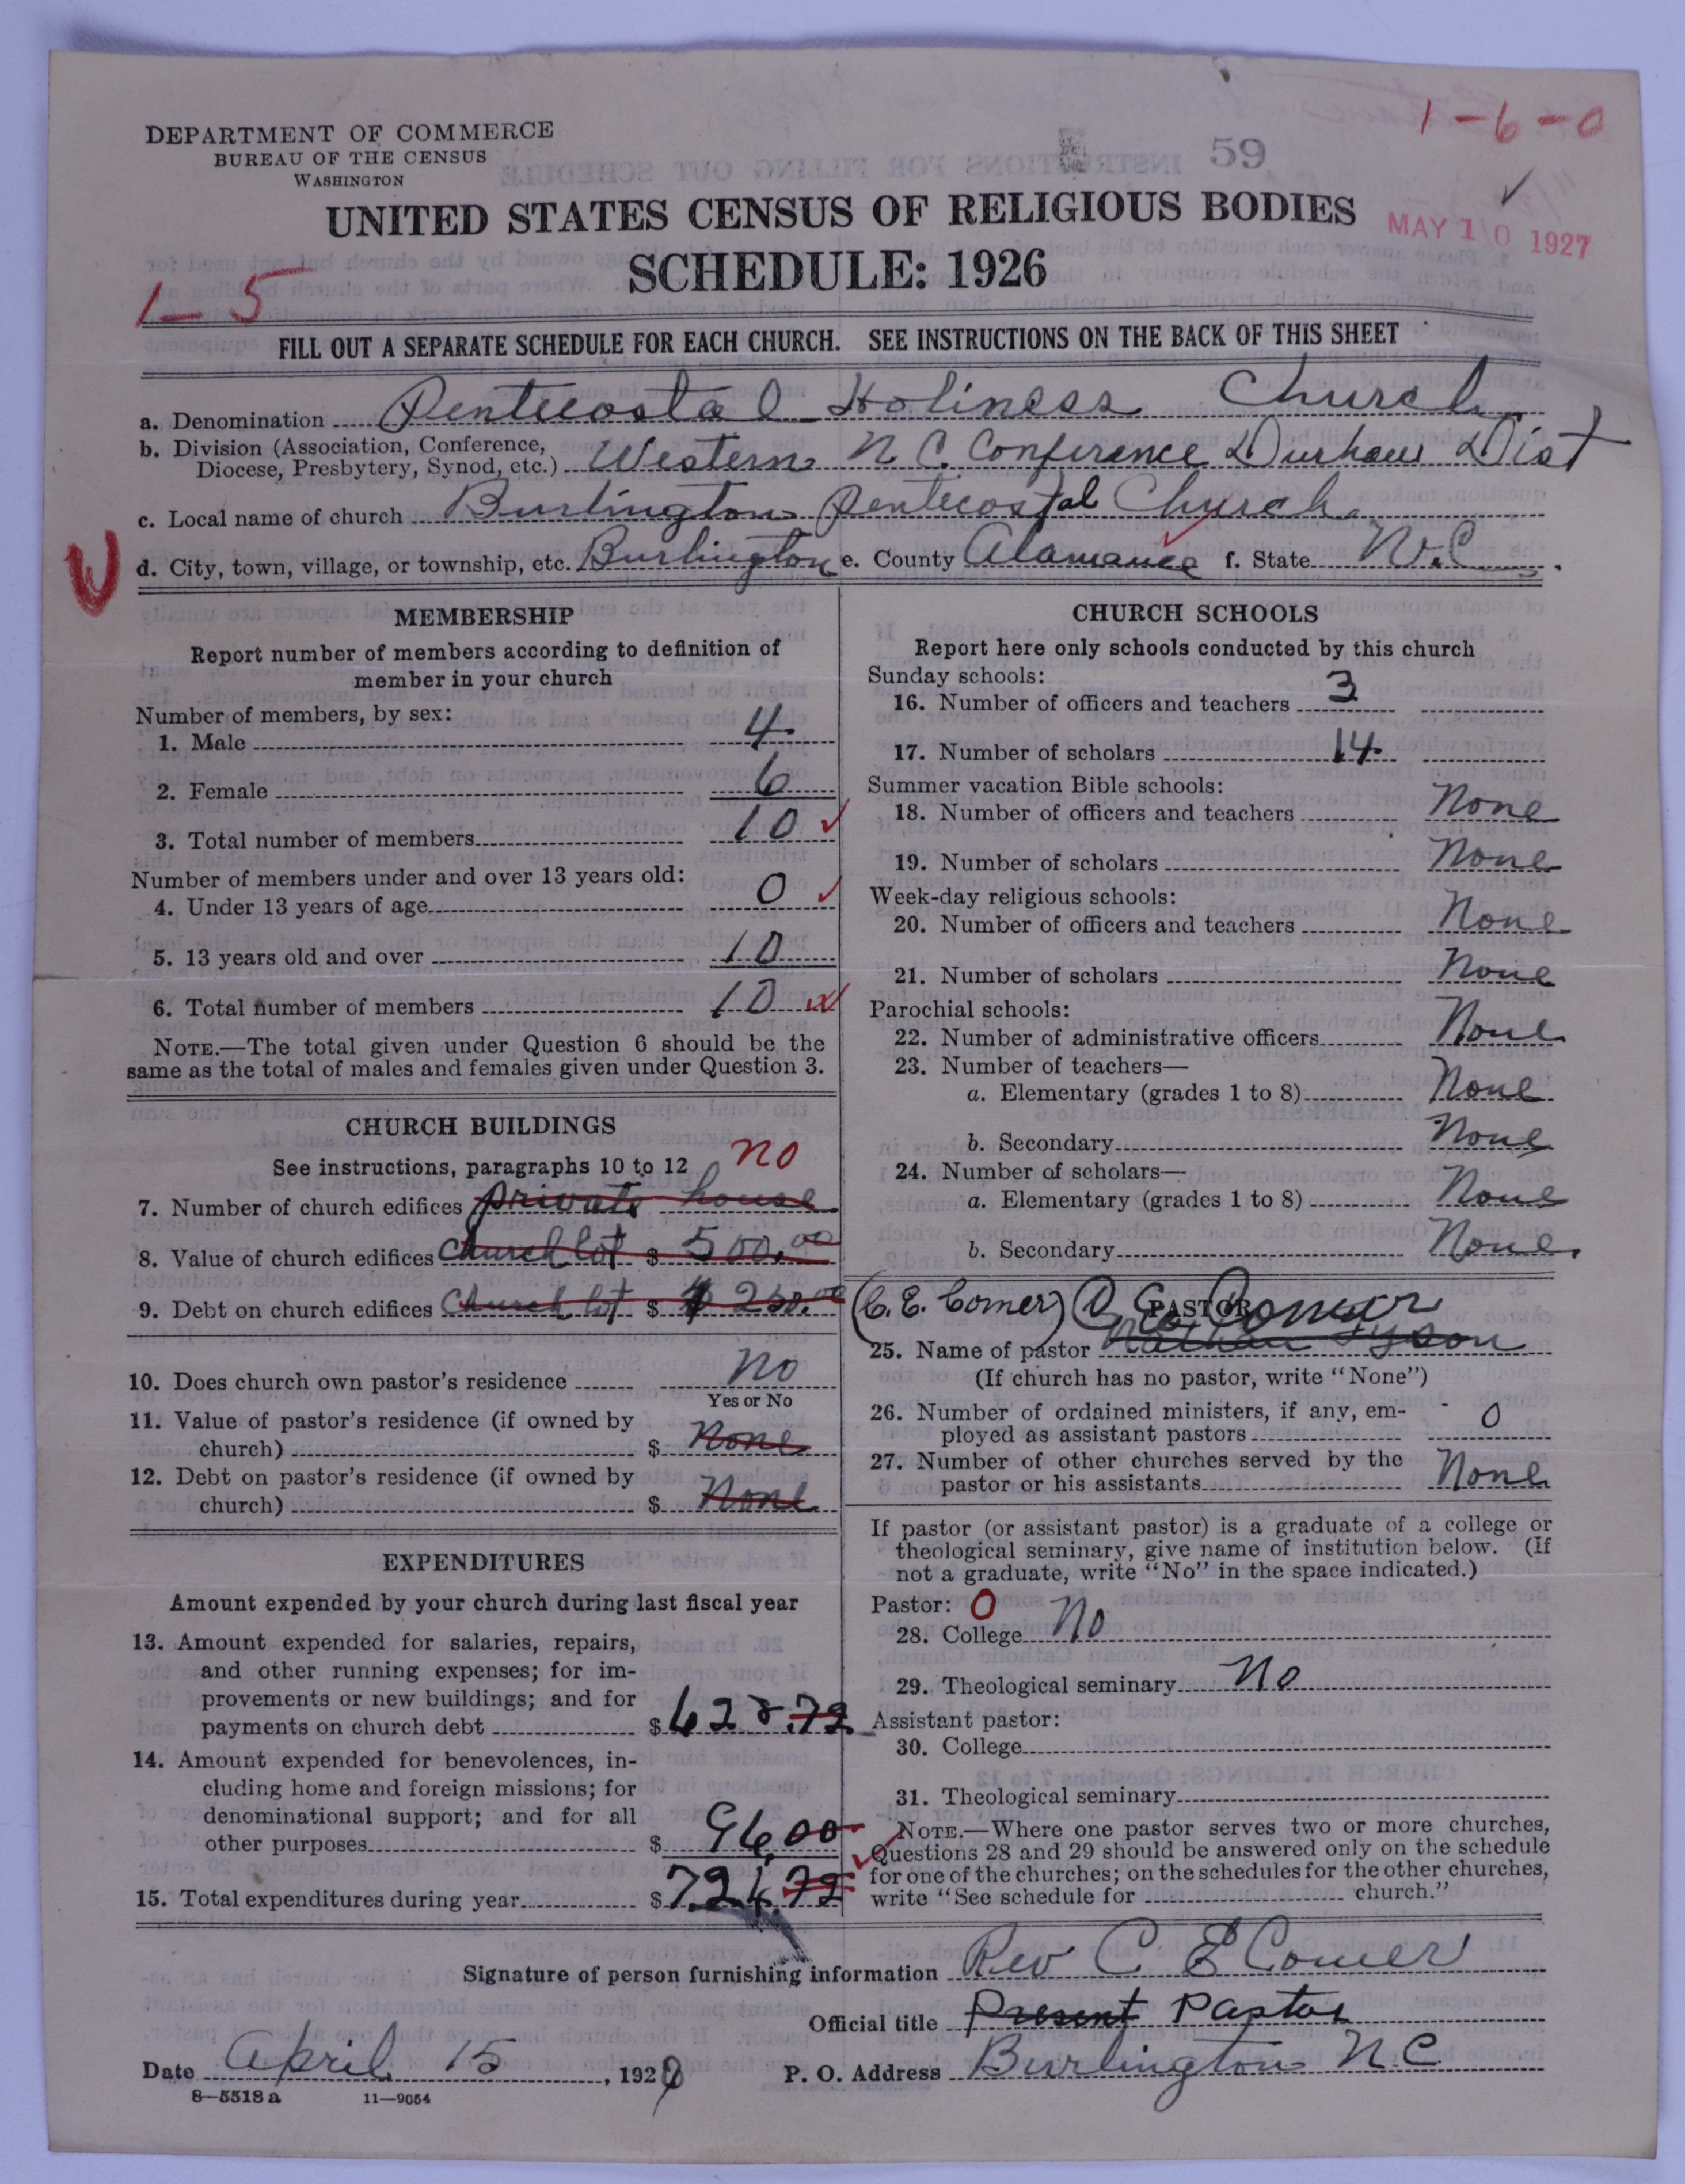 1-6-0
DEPARTMENT OF COMMERCE
BUREAU OF THE CENSUS
WASHINGTON
59
UNITED STATES CENSUS OF RELIGIOUS BODIES
MAY 10 1927
SCHEDULE: 1926
1-5
FILL OUT A SEPARATE SCHEDULE FOR EACH CHURCH. SEE INSTRUCTIONS ON THE BACK OF THIS SHEET
a. Denomination Pentecostal Holiness Church
b. Division (Association, Conference,
Diocese, Presbytery, Synod, etc.) Western N C. Conference Durham Dist
c. Local name of church Burlington Pentecostal Church
U
d. City, town, village, or township, etc. Burlington e. County Alamance f. State N.C.
MEMBERSHIP
Report number of members according to definition of
member in your church
Number of members, by sex:
1. Male 4
2. Female 6
3. Total number of members 10
Number of members under and over 13 years old:
4. Under 13 years of age 0
5. 13 years old and over 10
6. Total number of members 10
NOTE.—The total given under Question 6 should be the
same as the total of males and females given under Question 3.
CHURCH BUILDINGS
See instructions, paragraphs 10 to 12 no
7. Number of church edifices private house
8. Value of church edifices Church lot $ 500.00
9. Debt on church edifices Church lot $ 250.00
10. Does church own pastor's residence No
Yes or No
11. Value of pastor's residence (if owned by
church) $ None
12. Debt on pastor's residence (if owned by
church) $ None
EXPENDITURES
Amount expended by your church during last fiscal year
13. Amount expended for salaries, repairs,
and other running expenses; for im-
provements or new buildings; and for
payments on church debt $ 628.72
14. Amount expended for benevolences, in-
cluding home and foreign missions; for
denominational support; and for all
other purposes $ 96.00
15. Total expenditures during year $ 724.72
CHURCH SCHOOLS
Report here only schools conducted by this church
Sunday schools:
16. Number of officers and teachers 3
17. Number of scholars 14
Summer vacation Bible schools:
18. Number of officers and teachers None
19. Number of scholars None
Week-day religious schools:
20. Number of officers and teachers None
21. Number of scholars None
Parochial schools:
22. Number of administrative officers None
23. Number of teachers—
a. Elementary (grades 1 to 8) None
b. Secondary None
24. Number of scholars—
a. Elementary (grades 1 to 8) None
b. Secondary None
(C. E. Comer) C. E. Comer
PASTOR
25. Name of pastor Nathan Tyson
(If church has no pastor, write "None")
26. Number of ordained ministers, if any, em-
ployed as assistant pastors 0
27. Number of other churches served by the
pastor or his assistants None
If pastor (or assistant pastor) is a graduate of a college or
theological seminary, give name of institution below. (If
not a graduate, write "No" in the space indicated.)
Pastor: 0
28. College No
29. Theological seminary No
Assistant pastor:
30. College
31. Theological seminary
NOTE.—Where one pastor serves two or more churches,
Questions 28 and 29 should be answered only on the schedule
for one of the churches; on the schedules for the other churches,
write "See schedule for church."
Signature of person furnishing information Rev C E Comer
Official title Present Pastor
Date April 15, 1927 P. O. Address Burlington N C
8—5518 a 11—9054